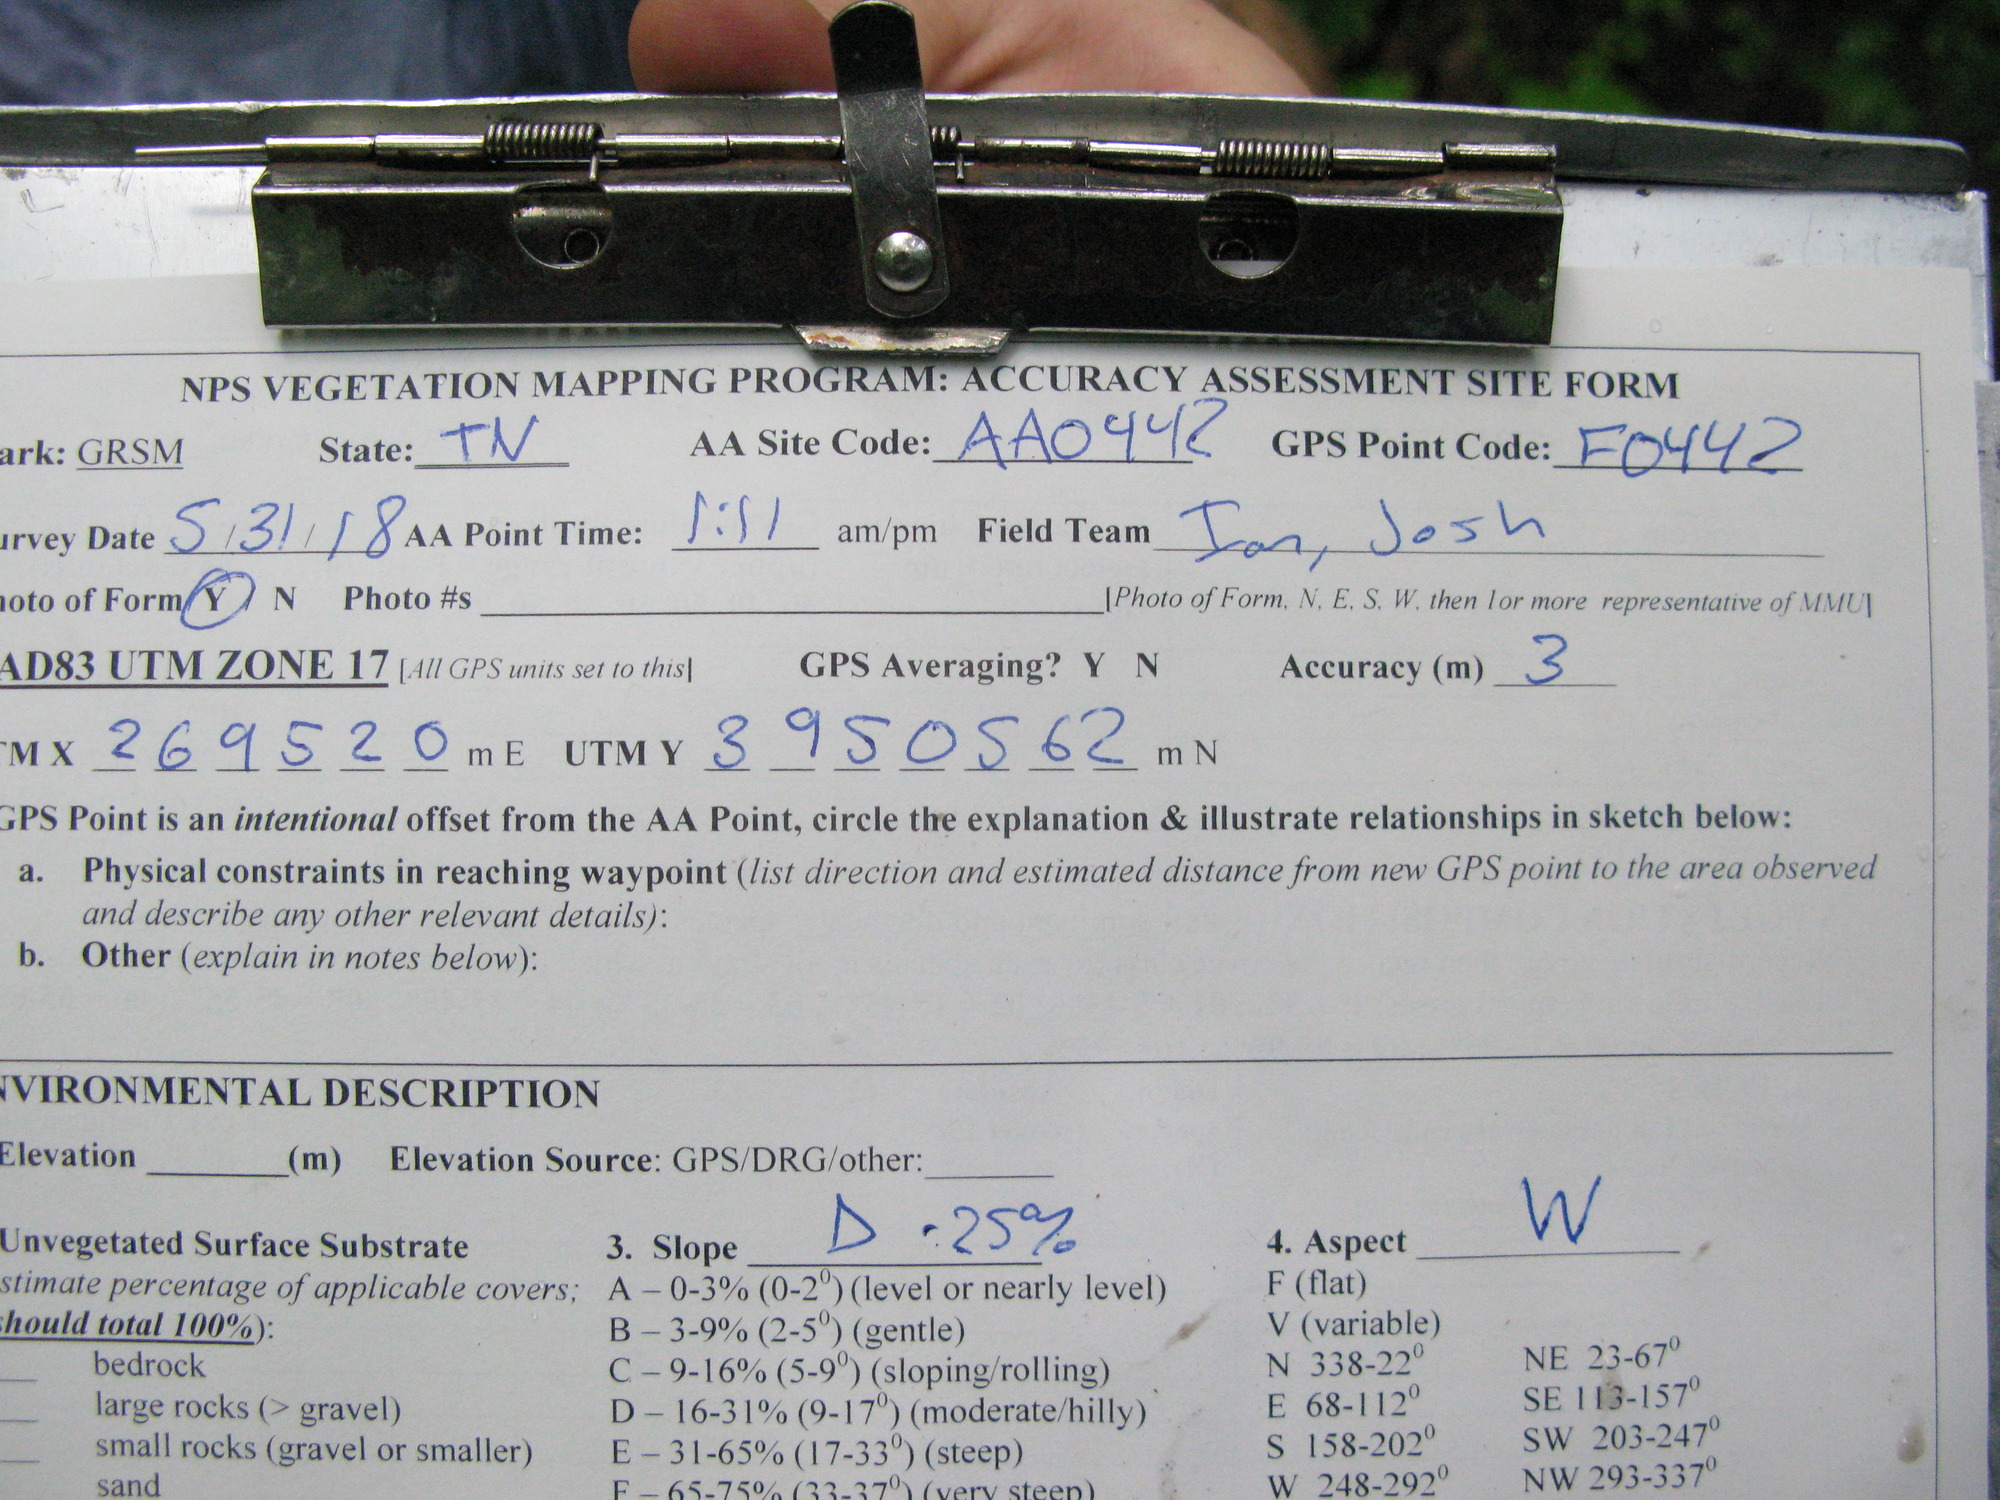 NPS VEGETATION MAPPING PROGRAM: ACCURACY ASSESSMENT SITE FORM
ark: GRSM State: TN AA Site Code: AA0442 GPS Point Code: F0442
urvey Date 5/31/18 AA Point Time: 1:11 am/pm Field Team Ian, Josh
hoto of Form Y N Photo #s [Photo of Form, N, E, S, W, then 1or more representative of MMU]
AD83 UTM ZONE 17 [All GPS units set to this] GPS Averaging? Y N Accuracy (m) 3
TM X 269520 m E UTM Y 3950562 m N
GPS Point is an intentional offset from the AA Point, circle the explanation & illustrate relationships in sketch below:
a. Physical constraints in reaching waypoint (list direction and estimated distance from new GPS point to the area observed
and describe any other relevant details):
b. Other (explain in notes below):
NVIRONMENTAL DESCRIPTION
Elevation (m) Elevation Source: GPS/DRG/other:
Unvegetated Surface Substrate 3. Slope D -25% 4. Aspect W
stimate percentage of applicable covers; A – 0-3% (0-2⁰) (level or nearly level) F (flat)
should total 100%): B – 3-9% (2-5⁰) (gentle) V (variable)
bedrock C – 9-16% (5-9⁰) (sloping/rolling) N 338-22⁰ NE 23-67⁰
large rocks (> gravel) D – 16-31% (9-17⁰) (moderate/hilly) E 68-112⁰ SE 113-157⁰
small rocks (gravel or smaller) E – 31-65% (17-33⁰) (steep) S 158-202⁰ SW 203-247⁰
sand F – 65-75% (33-37⁰) (very steep) W 248-292⁰ NW 293-337⁰